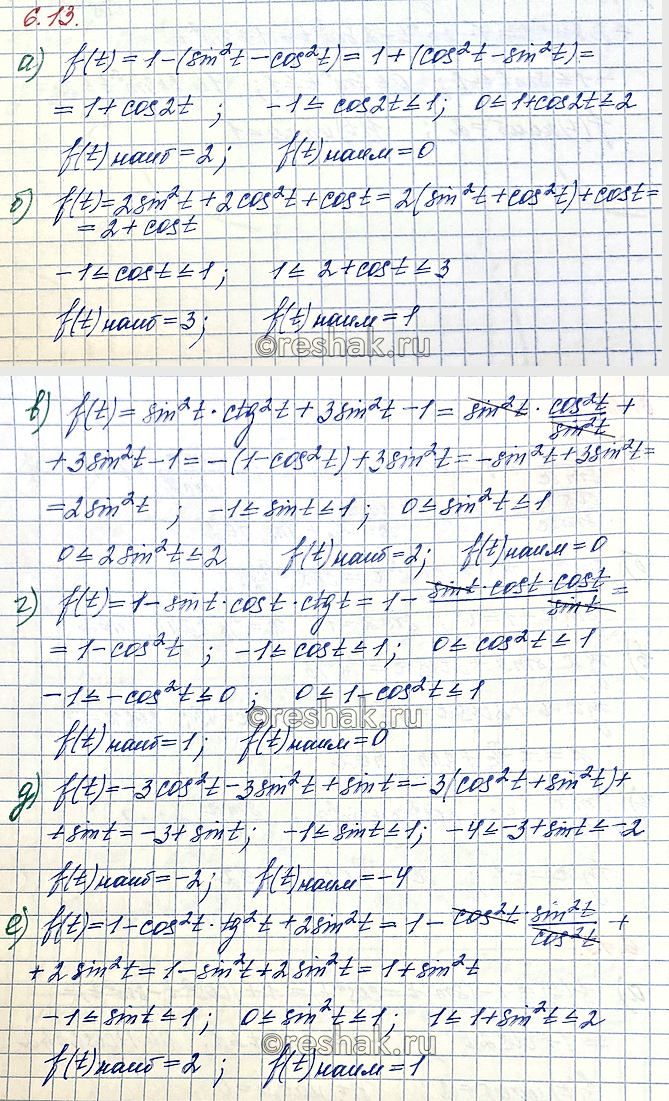 6.13.
а) f(t) = 1 - (sin²t - cos²t) = 1 + (cos²t - sin²t) =
= 1 + cos2t ; -1 ≤ cos2t ≤ 1; 0 ≤ 1+cos2t ≤ 2
f(t) наиб = 2; f(t) наим = 0
б) f(t) = 2sin²t + 2cos²t + cost = 2(sin²t + cos²t) + cost =
= 2 + cost
-1 ≤ cost ≤ 1; 1 ≤ 2 + cost ≤ 3
f(t) наиб = 3; f(t) наим = 1
©reshak.ru
в) f(t) = sin²t · ctg²t + 3sin²t - 1 = sin²t · cos²t/sin²t +
+ 3sin²t - 1 = -(1 - cos²t) + 3sin²t = -sin²t + 3sin²t =
= 2sin²t ; -1 ≤ sint ≤ 1 ; 0 ≤ sin²t ≤ 1
0 ≤ 2sin²t ≤ 2 f(t) наиб = 2; f(t) наим = 0
г) f(t) = 1 - sint · cost · ctgt = 1 - sint · cost · cost/sint =
= 1 - cos²t ; -1 ≤ cost ≤ 1; 0 ≤ cos²t ≤ 1
-1 ≤ -cos²t ≤ 0 ; 0 ≤ 1 - cos²t ≤ 1
©reshak.ru
f(t) наиб = 1; f(t) наим = 0
д) f(t) = -3cos²t - 3sin²t + sint = -3(cos²t + sin²t) +
+ sint = -3 + sint; -1 ≤ sint ≤ 1; -4 ≤ -3 + sint ≤ -2
f(t) наиб = -2; f(t) наим = -4
е) f(t) = 1 - cos²t · tg²t + 2sin²t = 1 - cos²t · sin²t/cos²t +
+ 2sin²t = 1 - sin²t + 2sin²t = 1 + sin²t
-1 ≤ sint ≤ 1; 0 ≤ sin²t ≤ 1; 1 ≤ 1 + sin²t ≤ 2
©reshak.ru
f(t) наиб = 2 ; f(t) наим = 1